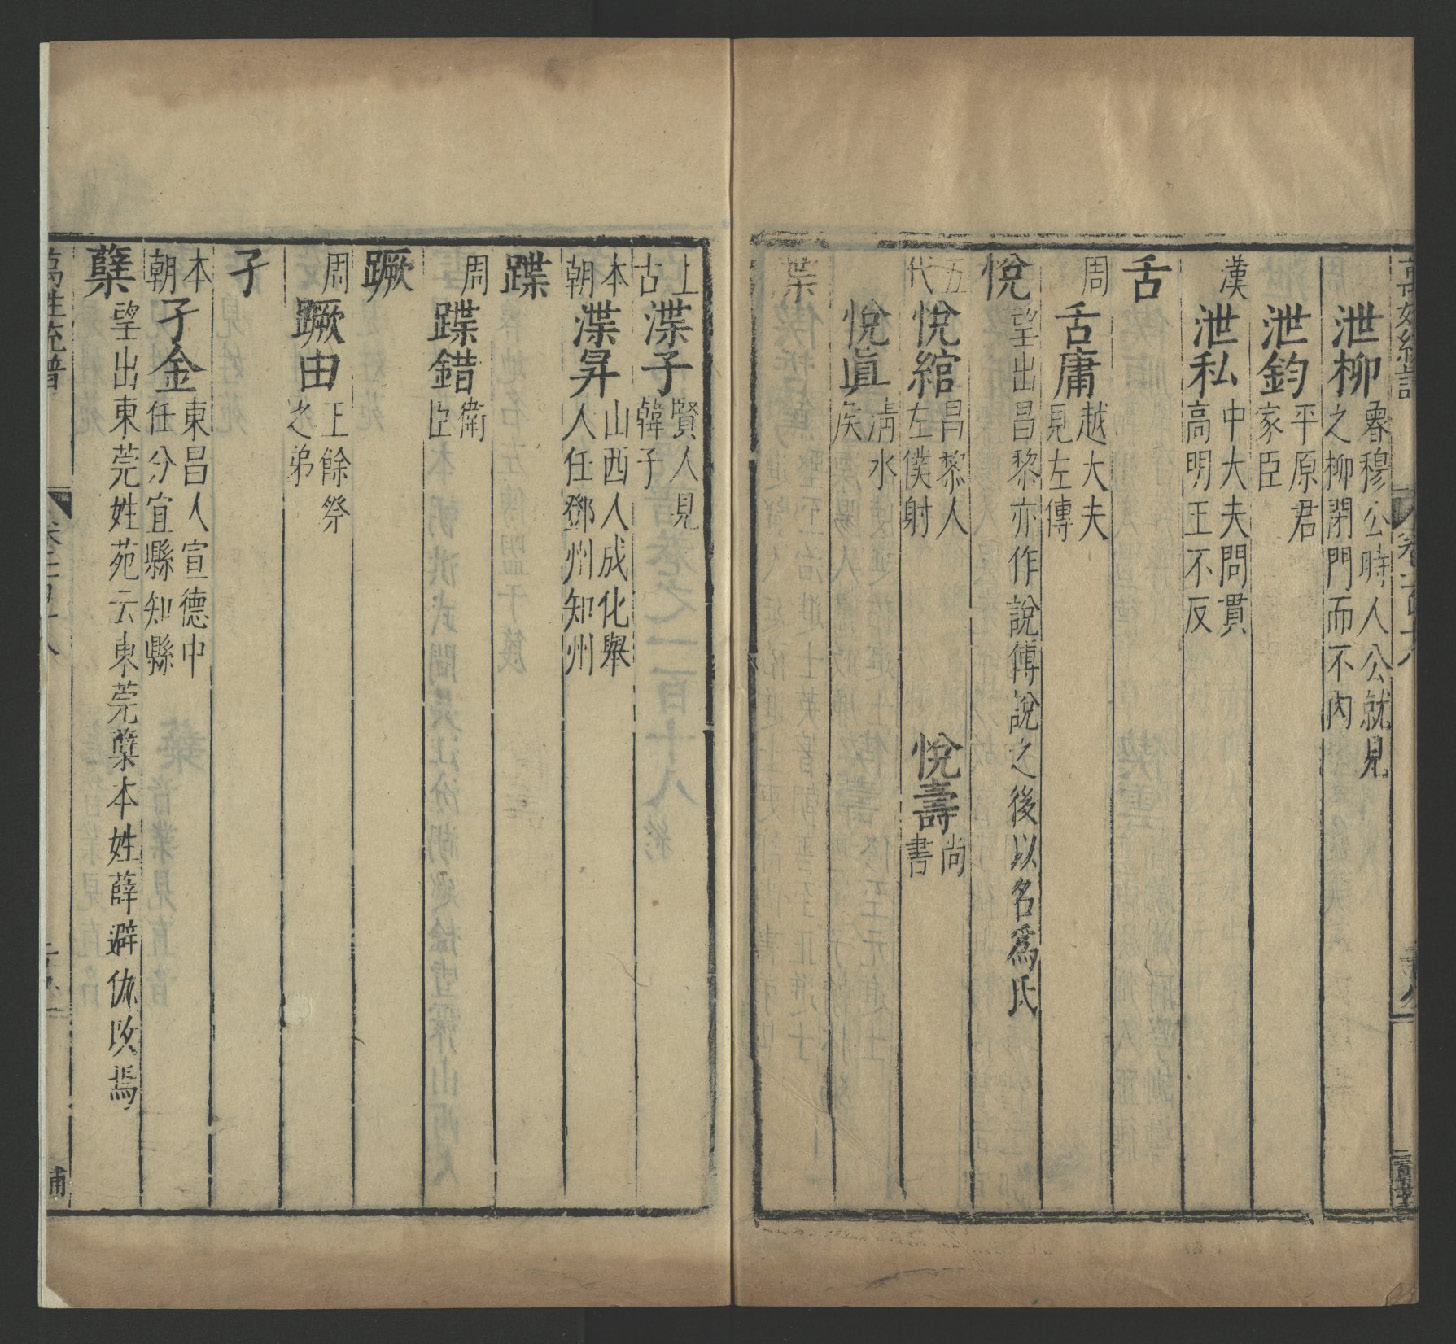 泄柳魯穆公時人公就見之柳閉門而不內
泄鈞平原君家臣
漢泄私中大夫問貫高明王不反
舌
周舌庸越大夫見左傳
悅望出昌黎亦作說傅說之後以名爲氏
五代悅綰昌黎人左僕射 悅壽尚書
悅眞清水侯
葉
上古渫子賢人見韓子
本朝渫昇山西人成化舉人任鄧州知州
蹀
周蹀錯衛臣
蹶
周蹶由王餘祭之弟
孑
本朝孑金東昌人宣德中任分宜縣知縣
蘖望出東莞姓苑云東莞蘖本姓薛避仇改焉
萬姓統譜